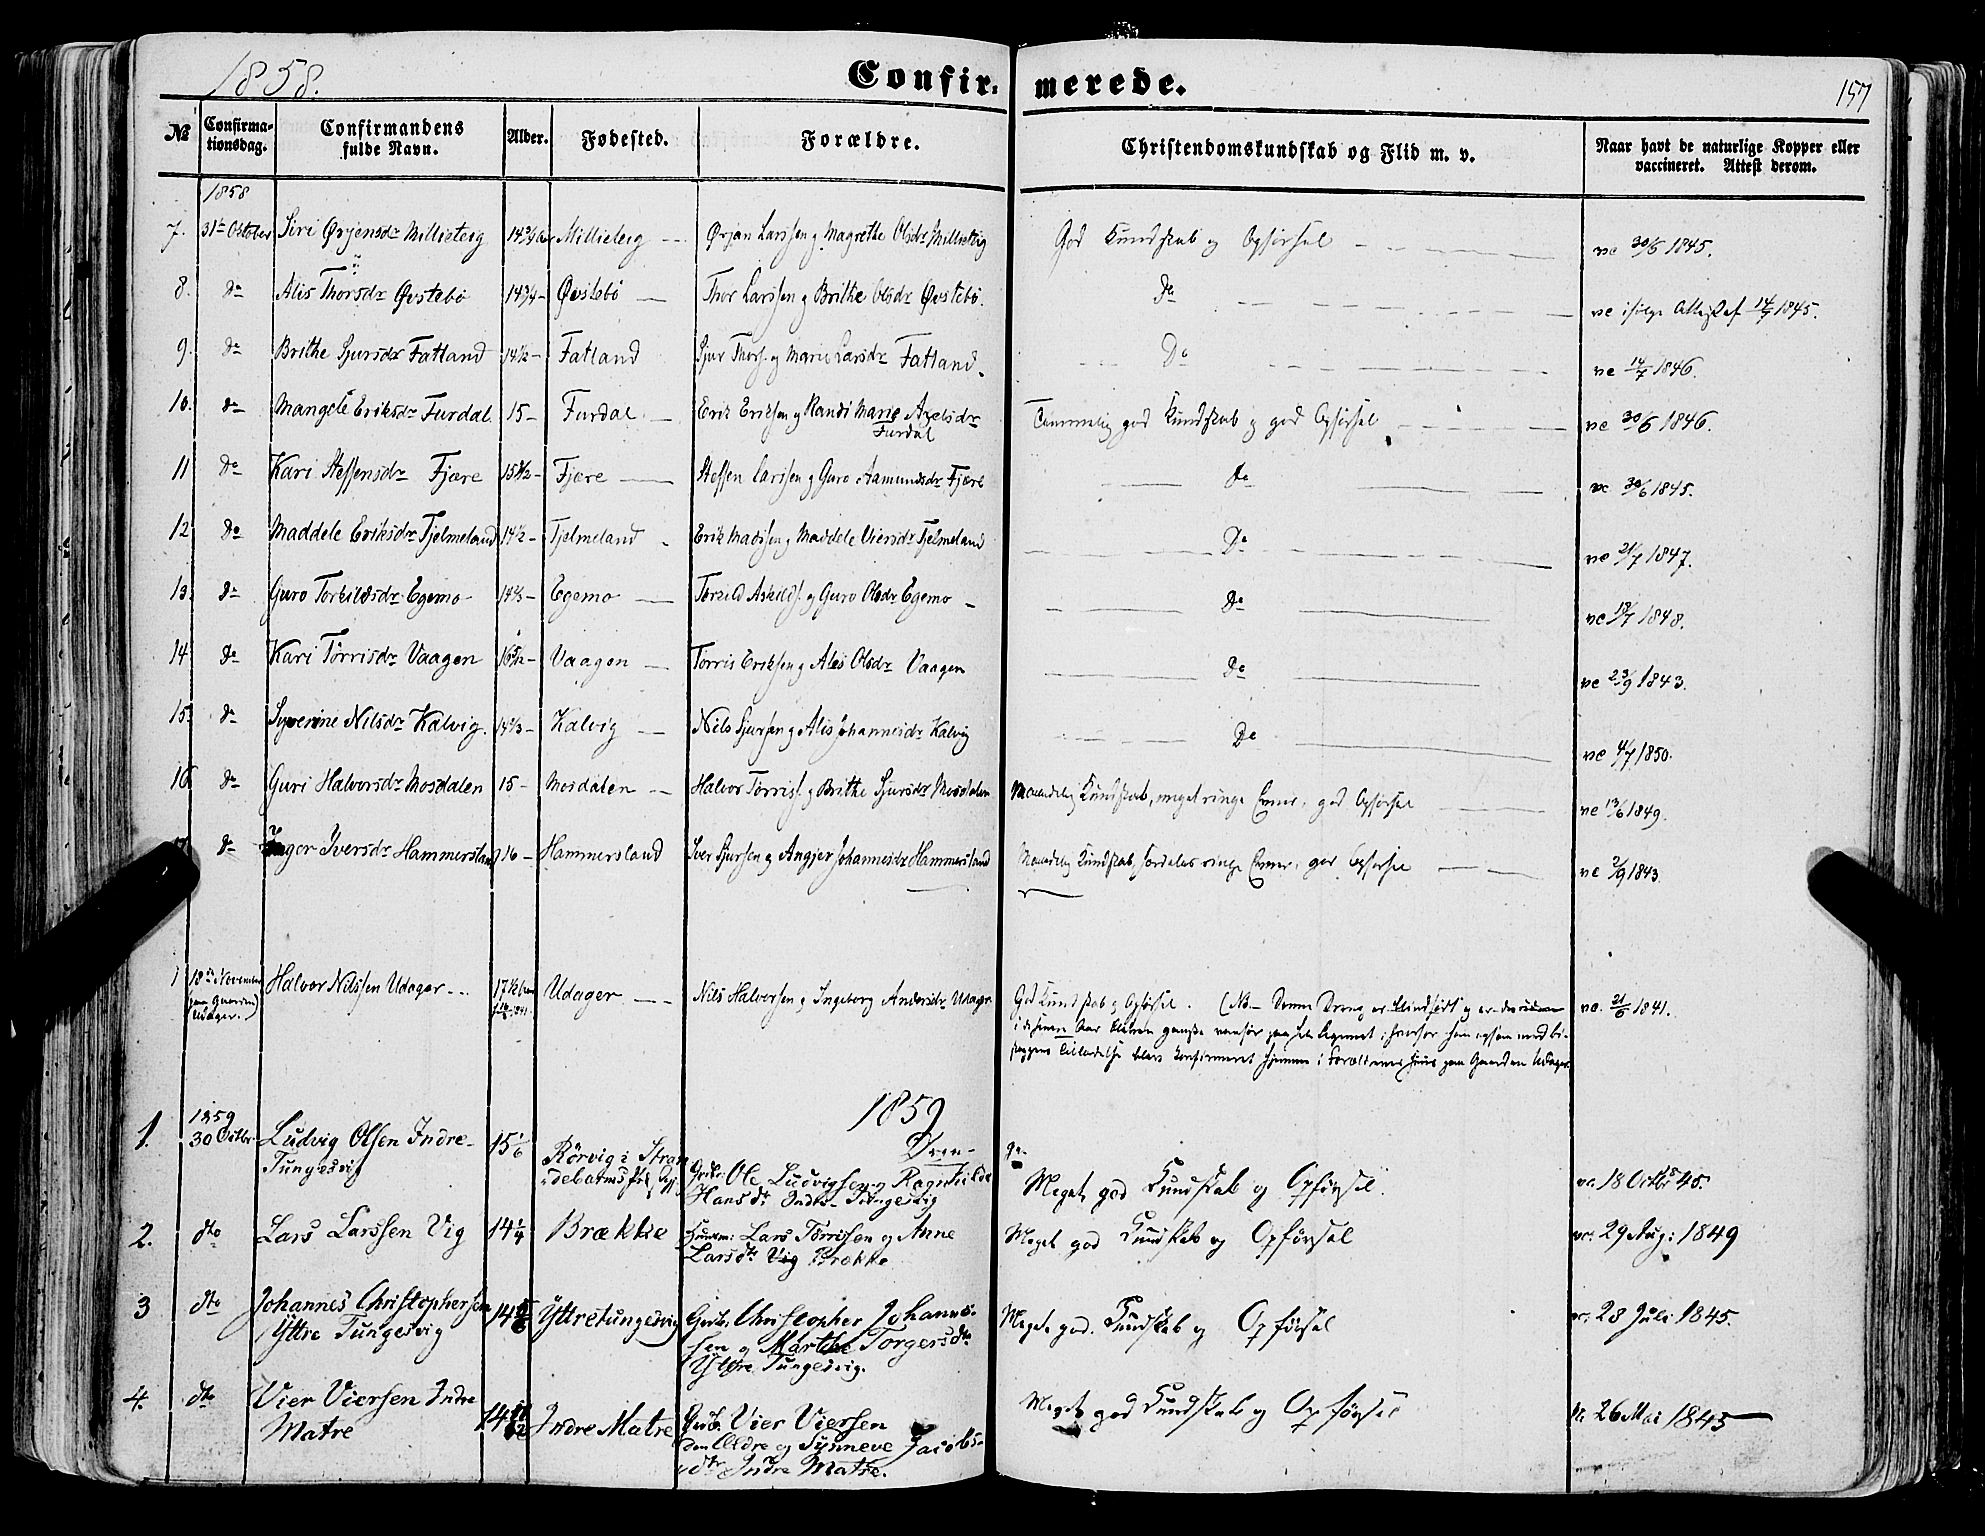 1858.
Confir- merede.
157
№
Confirma-
tionsdag.
Confirmandens
fulde Navn.
Alder.
Fødested.
Forældre.
Christendomskundskab og Flid m. v.
Naar havt de naturlige Kopper eller
vaccineret. Attest derom.
1858
7. 31te October Siri Ørjensdr Millieteig 14 3/4 Aar Millieteig Ørjan Larssen og Magrethe Olsdr Millieteig God Kundskab og Opførsel vc 30/6 1845.
8. do Alis Thorsdr Øvstebö 14 3/4 Øvstebö Thor Larssen og Brithe Olsdr Øvstebö. Do vc ifølge Attest af 14/7 1845.
9. do Brithe Sjursdr Fatland 14 1/2 Fatland Sjur Thors. og Marie Larsdr Fatland. Do vc 14/7 1846.
10. do Mangele Eriksdr Furdal 15 Furdal Erik Eriksen og Randi Marie Axelsdr
Furdal Temmelig god Kundskab og god Opførsel vc 30/6 1846.
11 do Kari Steffensdr Fjære 15 1/2 Fjære Steffen Larssen og Guro Aamundsdr Fjære Do vc 30/6 1845.
12 do Maddele Eriksdr Fjelmeland 14 1/2 Fjelmeland Erik Madssen og Maddele Viersdr Fjelmeland Do vc 21/7 1847.
13. do Guro Torkildsdr Egemo Egemo Torkild Askilds. og Guro Olsdr Egemo Do vc 18/7 1848.
14 do Kari Törrisdr Vaagen Vaagen Törris Eriksen og Ales Olsdr Vaagen Do vc 23/9 1843.
15. do Syverine Nilsdr Kalvig. Kalvig Nils Sjursen og Alis Johannesdr Kalvig Do vc 4/7 1850.
16 do Guri Halvorsdr Mosdalen 15 Mosdalen Halvor Törris. og Brithe Sjursdr Mosdalen Maadelig Kundskab, meget ringe Evner, god Opførsel vc 13/6 1849.
17 do Inger Iversdr Hammersland 16 Hammersland Iver Sjursen og Angjer Johannesdr Hammersland Maadelig Kundskab, særdeles ringe Evner, god Opførsel vc 2/9 1843.
1 18de November
(paa Gaarden
Udager.) Halvor Nilssen Udager 17 1/2 Aar Udager Nils Halvorsen og Ingeborg Andersdr Udager God Kundskab og Opførsel. (NB. Denne Dreng er blindfødt og er desuden
i de senere Aar bleven ganske vanfør paa sit Legemet, hvorfor han ogsaa med Bi-
skoppens Tilladelse blev konfirmeret hjemme i Forældrenes Huus paa Gaarden Udager. vc. 21/6 1841.
1859
1. 1859
30 Octbr. Ludvig Olsen Indre-
Tungesvig 15 1/6 Rörvig i Stran-
debarms Gaardbr. Ole Ludvigsen og Ragnhilde
Hansdtr Indre-Tungesvig Meget god Kundskab og Opførsel. vc. 18 Octbr 45.
2. dto Lars Larssen Vig 14 1/4 Brække Huusm: Lars Törrissen og Anne
Larsdtr Vig Brække Meget god Kundskab og Opførsel vc. 29 Aug: 1849
3 dto Johannes Christophersen
Yttre Tungesvig 14 Yttretungesvig Gbr. Christopher Johanne-
sen og Marthe Torgersdtr
Yttre Tungesvig. Meget god Kundskab og Opførsel vc. 28 Juli 1845.
4. dto Vier Viersen Indre
Matre 14 Indre Matre Gbr. Vier Viersen
den Ældre og Synneve Jacobs-
dtr Indre Matre. Meget god Kundskab og Opførsel vc 26 Mai 1845